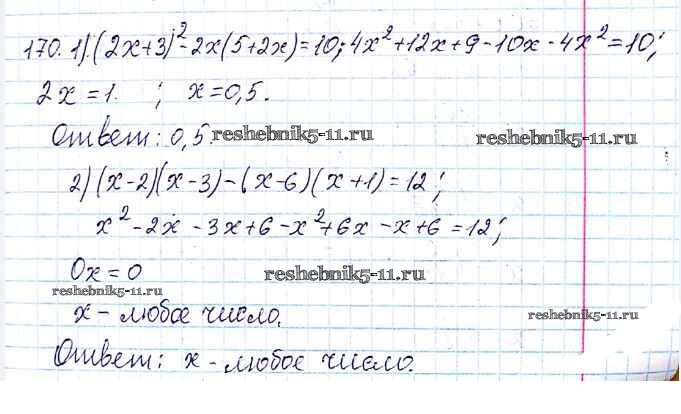 170. 1).(2x+3)²-2x(5+2x)=10; 4x²+12x+9-10x-4x²=10;
2x=1. ; x=0,5.
Ответ: 0,5. reshebnik5-11.ru reshebnik5-11.ru
2) (x-2)(x-3)-(x-6)(x+1)=12;
x²-2x-3x+6-x²+6x-x+6=12;
0x=0 reshebnik5-11.ru
reshebnik5-11.ru
x-любое число. reshebnik5-11.ru
Ответ: x-любое число.